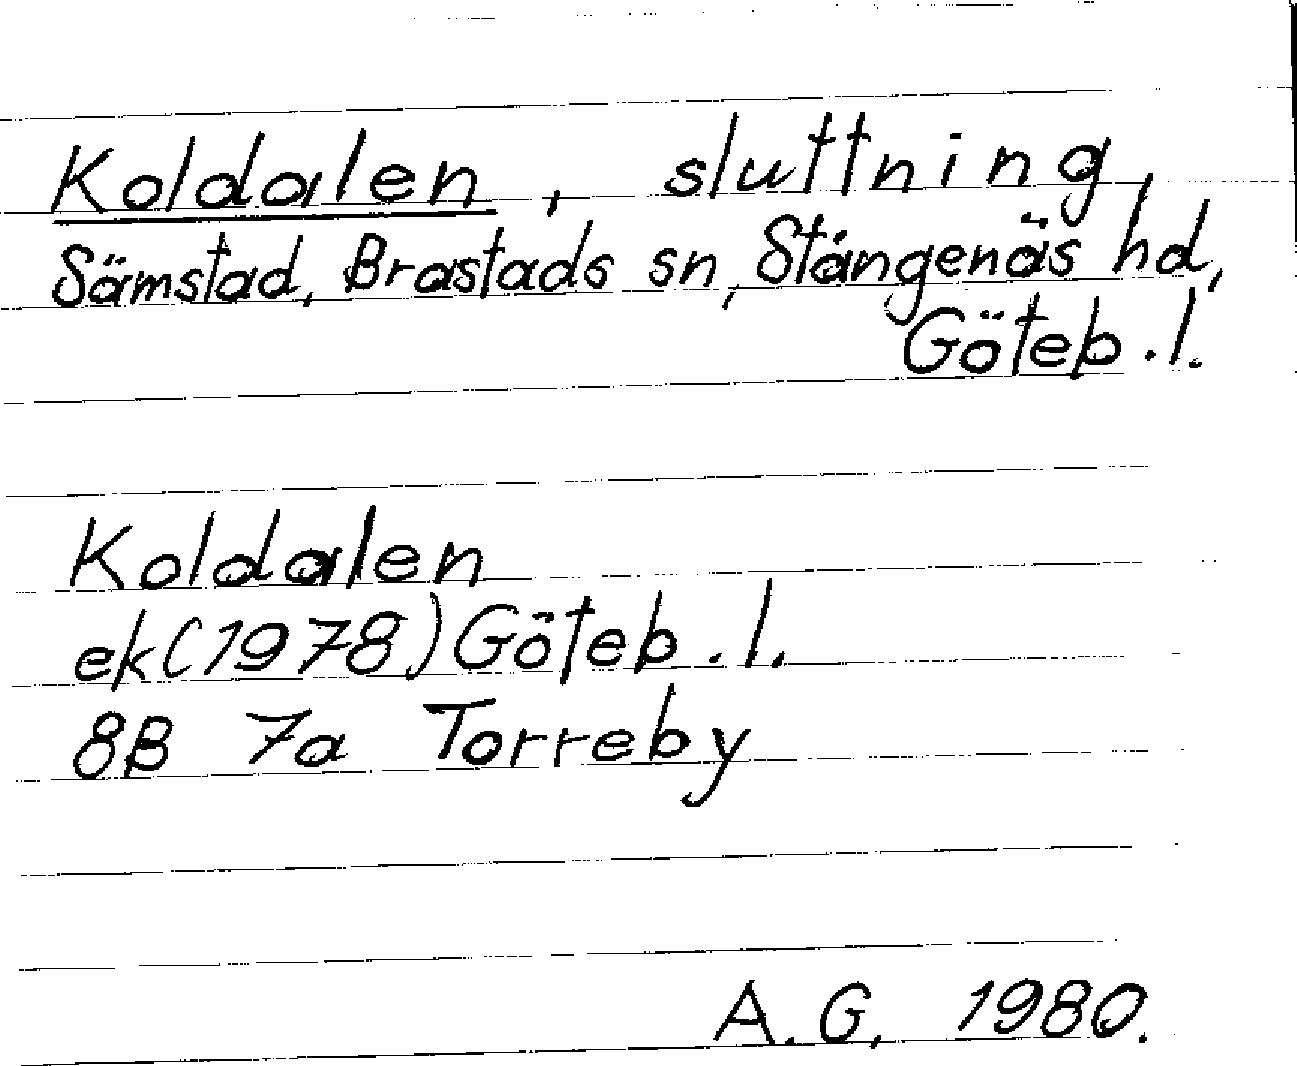 Koldalen, sluttning,
Sämstad, Brastads sn, Stångenäs hd,
Göteb.l.
Koldalen
ek(1978) Göteb.l.
8B 7a Torreby
A.G, 1980.